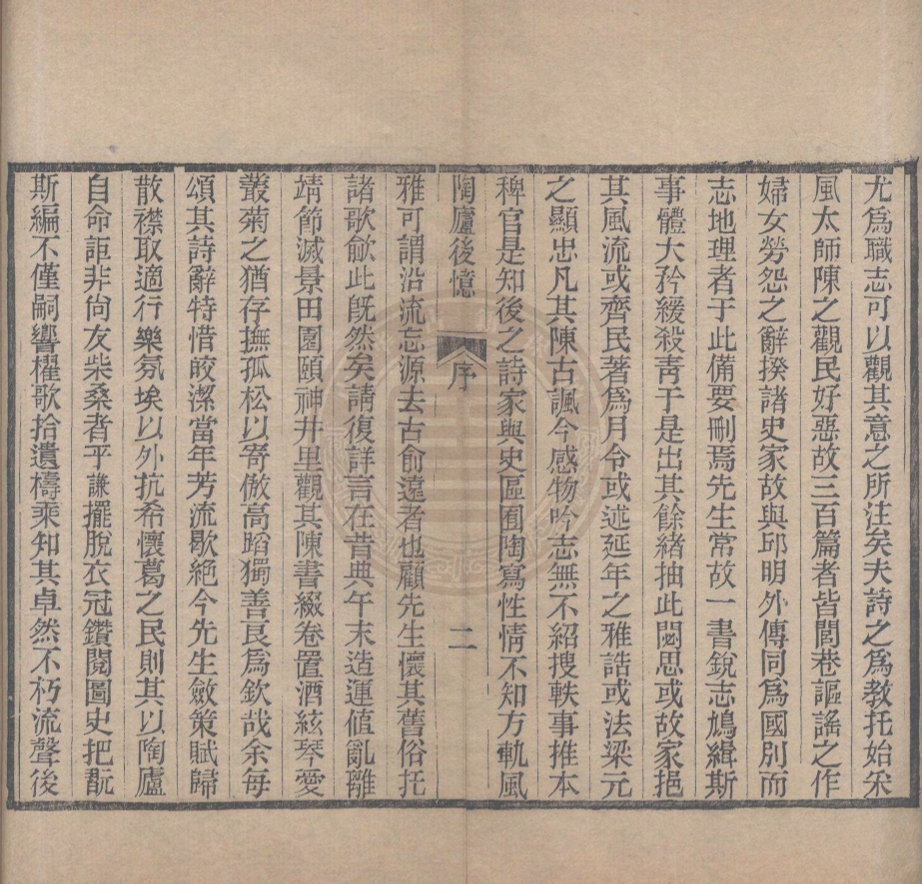 尤爲職志可以觀其意之所注矣夫詩之爲教托始采
風太師陳之觀民好惡故三百篇者皆閭巷謳謠之作
婦女勞怨之辭揆諸史家故與邱明外傳同爲國別而
志地理者于此備要刪焉先生常故一書銳志鳩緝斯
事體大矜緩殺靑于是出其餘緒抽此閟思或故家挹
其風流或齊民著爲月令或述延年之雅誥或法梁元
之顯忠凡其陳古諷今感物吟志無不紹搜軼事推本
稗官是知後之詩家與史區囿陶寫性情不知方軌風
陶廬後憶 序 二
雅可謂沿流忘源去古俞遠者也顧先生懷其舊俗托
諸歌歈此旣然矣請復詳言在昔典午末造運值亂離
靖節滅景田園頤神井里觀其陳書綴卷置酒絃琴愛
叢菊之猶存撫孤松以寄傲高蹈獨善良爲欽哉余每
頌其詩辭特惜皎潔當年芳流歇絕今先生斂策賦歸
散襟取適行樂氛埃以外抗希懷葛之民則其以陶廬
自命詎非尙友柴桑者乎謙擺脫衣冠鑽閱圖史把翫
斯編不僅嗣響櫂歌拾遺檮乘知其卓然不朽流聲後